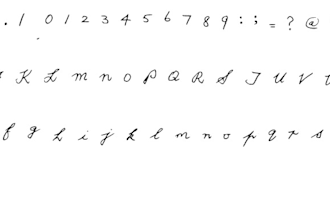 . / 0 1 2 3 4 5 6 7 8 9 : ; = ? @
K L M N O P Q R S T U V
f g h i j k l m n o p q r s